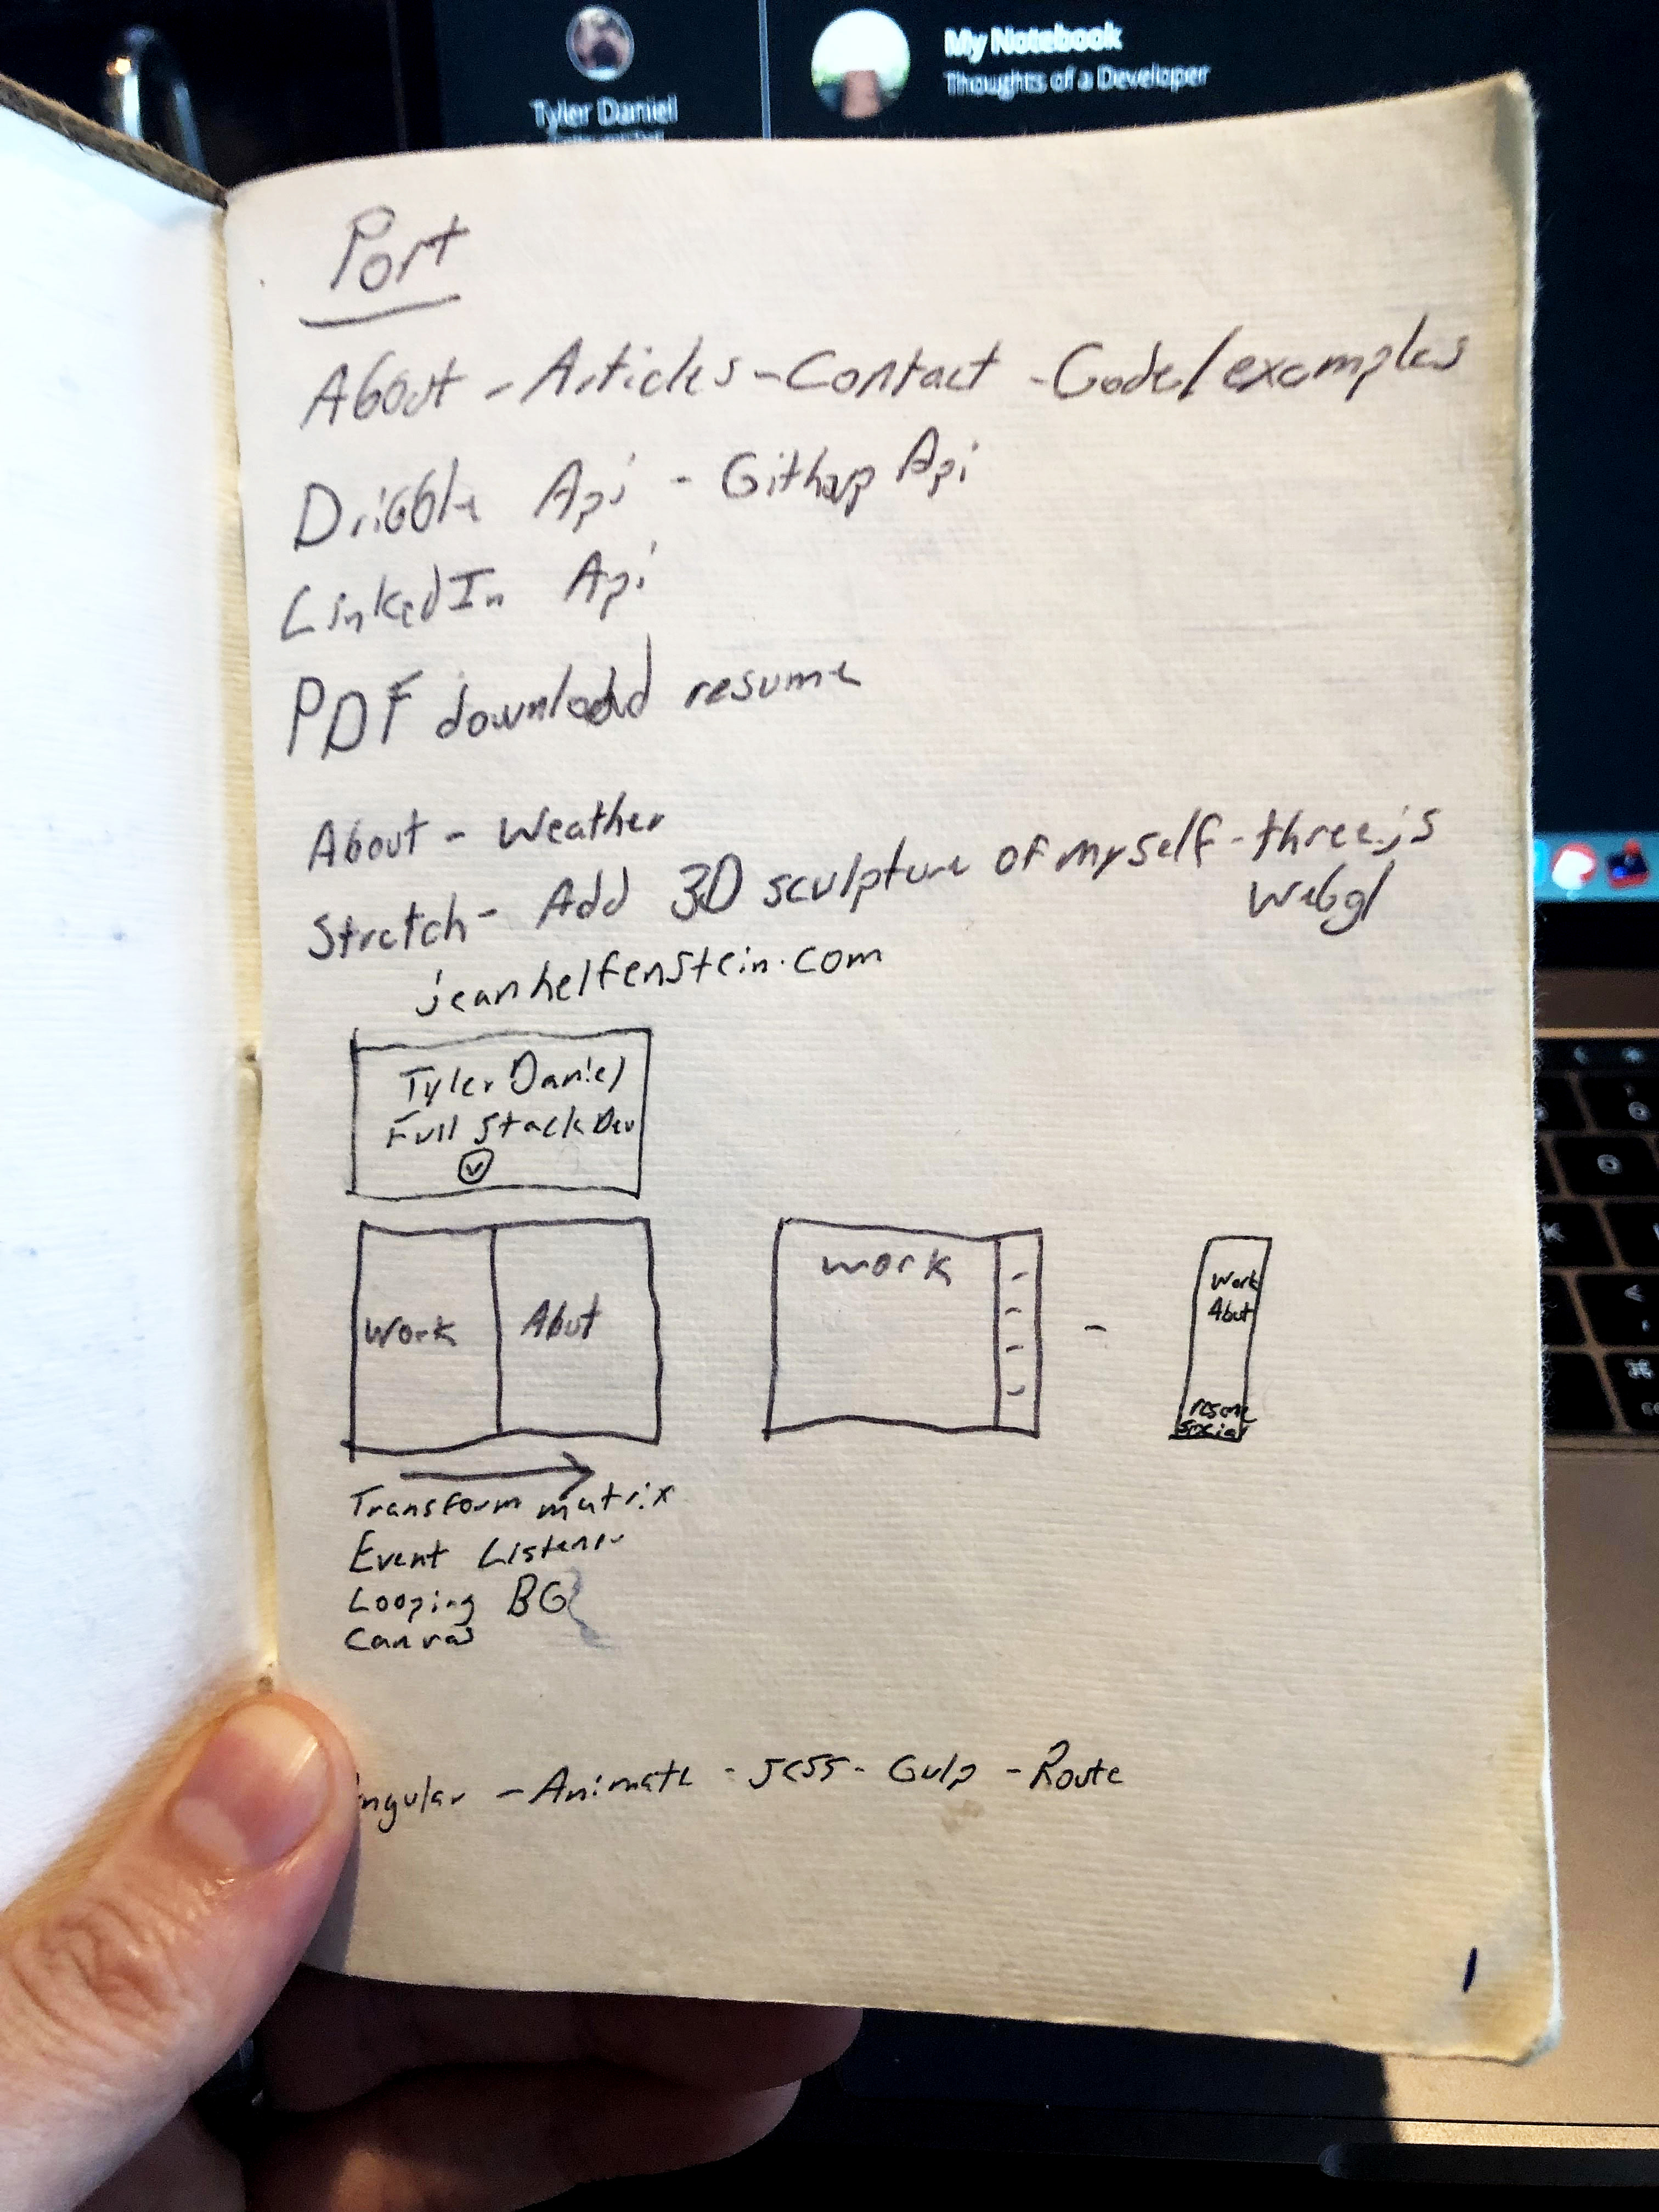 My Notebook
Thoughts of a Developer
Tyler Daniel
Port
About - Articles - Contact - Code/examples
Dribble Api - Githap Api
LinkedIn Api
PDF download resume
About - Weather
Stretch - Add 3D sculpture of myself - three.js
Webgl
jeanhelfenstein.com
Tyler Daniel
Full Stack Dev
Work
Abut
work
Work
Abut
resume
social
Transform matrix
Event Listener
Looping BG
Canvas
ngular - Animate - JCSS - Gulp - Route
1